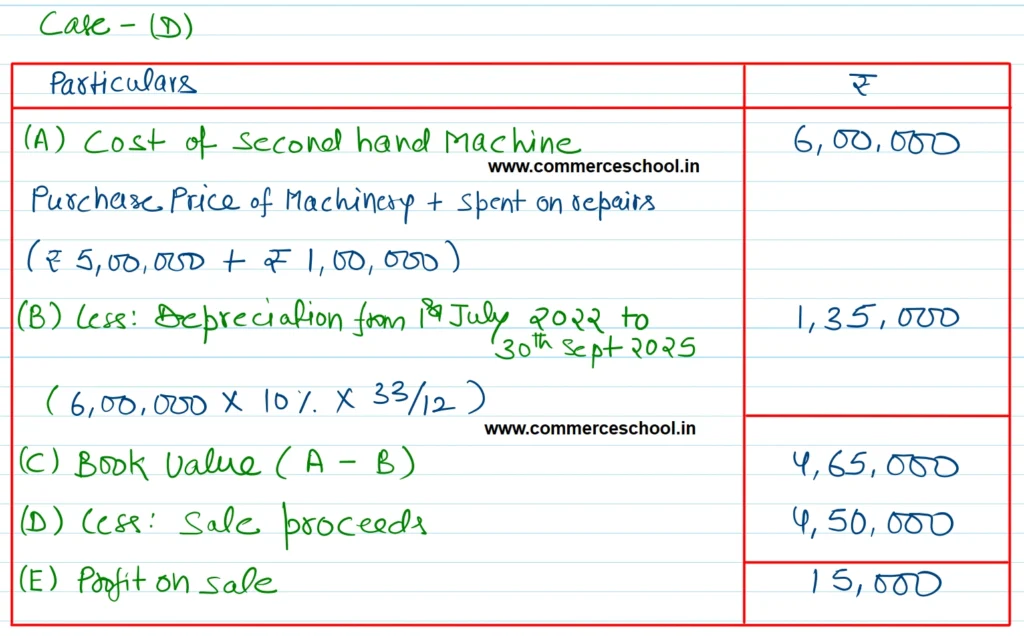 Case - (D)
Particulars ₹
(A) Cost of Second hand Machine 6,00,000
www.commerceschool.in
Purchase Price of Machinery + Spent on repairs
(₹ 5,00,000 + ₹ 1,00,000)
(B) Less: Depreciation from 1st July 2022 to 1,35,000
30th Sept 2025
(6,00,000 X 10%. X 33/12)
www.commerceschool.in
(C) Book Value (A - B) 4,65,000
(D) Less: Sale proceeds 4,50,000
(E) Profit on sale 15,000